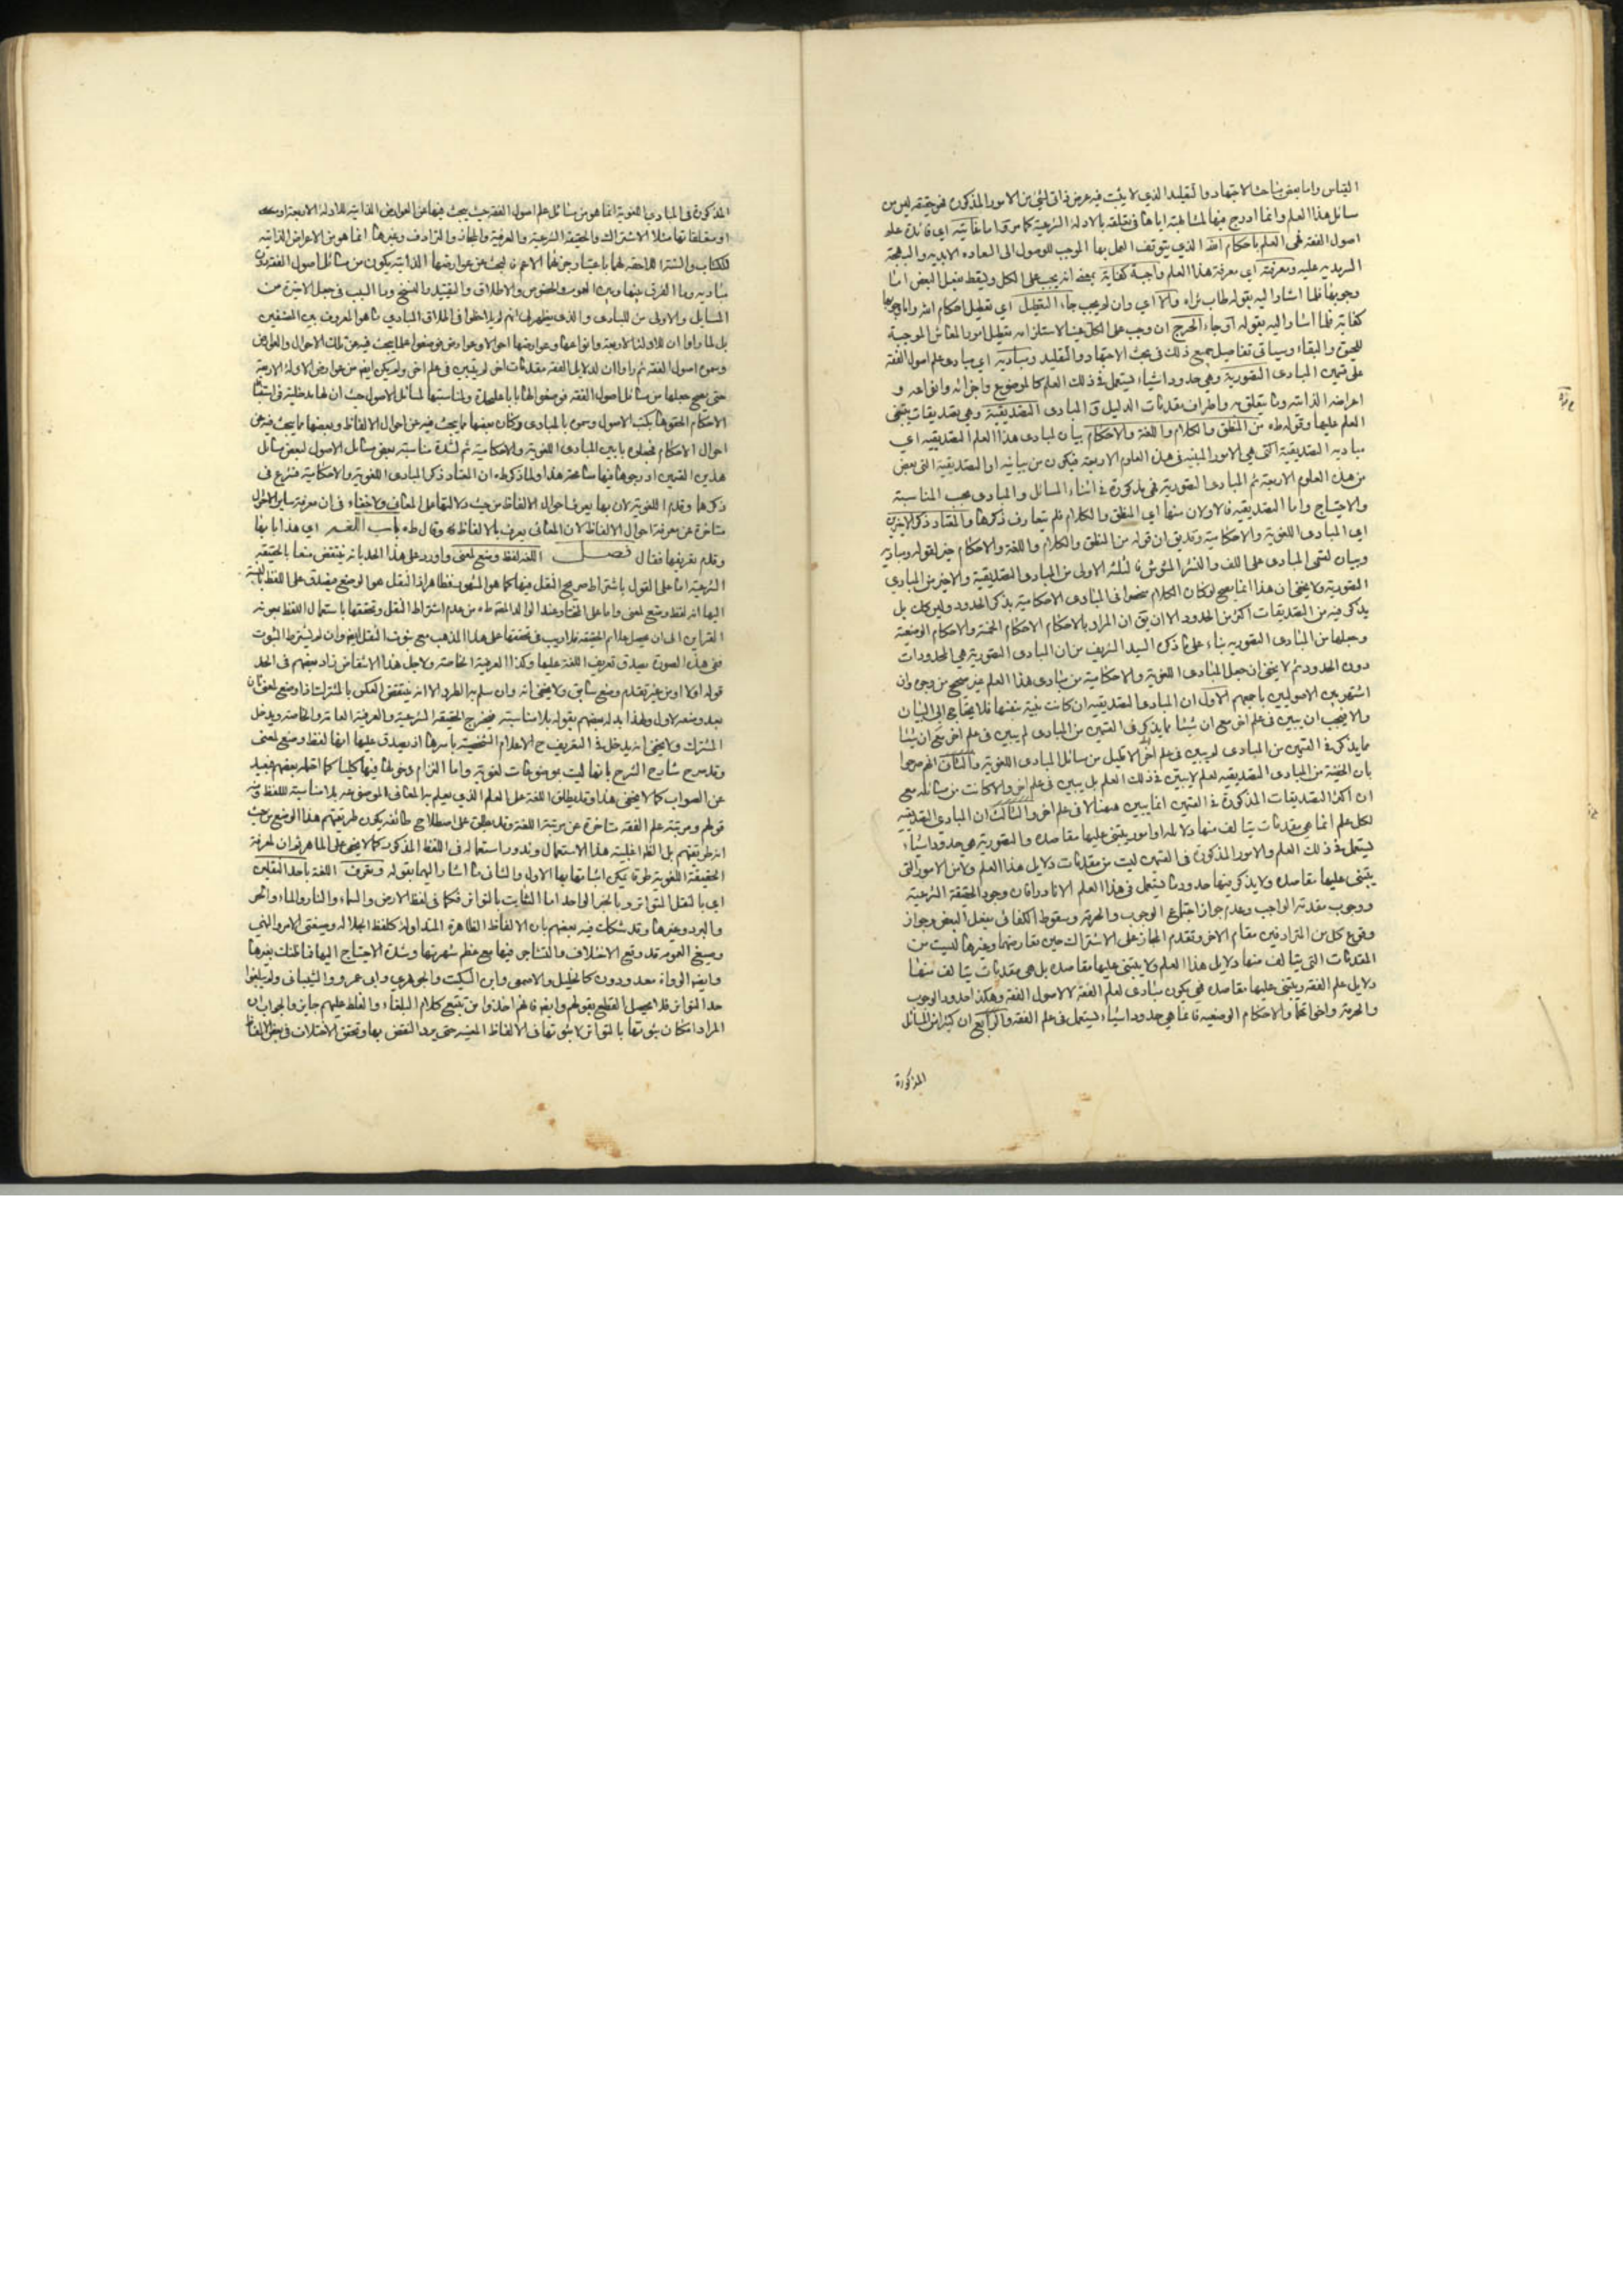 القياس واما بعض مباحث الاجتهاد والتقليد الذي لا يثبت فيه عرض ذاتي لشئ من الامور المذكورة فهو حقيقة ليس من
مسائل هذا العلم وانما ادرج فيها لمشابهته اياها في تعلقه بالادلة الشرعية كما مر واما غايته اي فائدة علم
اصول الفقه فهي العلم باحكام الله الذي يتوقف العمل بها الموجب للوصول الى السعادة الابدية والبهجة
السرمدية عليه ومعرفته اي معرفة هذا العلم واجبة كفاية بمعنى انه يجب على الكل ويسقط بفعل البعض اما
وجوبها فلما اشار اليه بقوله طاب ثراه والا اي وان لم يجب جاء التعطيل اي تعطيل احكام الله واما وجوبها
كفاية فلما اشار اليه بقوله او جاء الحرج ان وجب على الكل عينا لاستلزامه تعطيل امور المعاش الموجبة
للحيوة والبقاء وسياتي تفاصيل جميع ذلك في بحث الاجتهاد والتقليد ومباديه اي مبادي علم اصول الفقه
على قسمين المبادى التصورية وهي حدود اشياء تستعمل في ذلك العلم كالموضوع واجزائه وانواعه و
اعراضه الذاتيه وما يتعلق به واطراف مقدمات الدليل و المبادى التصديقية وهي تصديقات يبتنى
العلم عليها وقوله طه من المنطق والكلام واللغة والاحكام بيان لمبادى هذا العلم التصديقيه اي
مباديه التصديقية التي هي الامور المبنيه في هذه العلوم الاربعة فيكون من بيانيه او التصديقية التي بعض
من هذه العلوم الاربعة ثم المبادى التصورية فهي مذكورة في اثناء المسائل والمبادى بحسب المناسبة
والاحتياج واما التصديقيه فالاولان منها اي المنطق والكلام فلم يتعارف ذكرها والمعتاد ذكر الاخيرين
اي المبادى اللغوية والاحكامية وقد يق ان قوله من المنطق والكلام واللغة والاحكام خبر لقوله ومباديه
وبيان لقسمى المبادى على اللف والنشر المشوش فالثلثة الاولى من المبادى التصديقية والاخير من المبادي
التصورية ولا يخفى ان هذا انما يصح لو كان الكلام منحصرا في المبادى الاحكامية بذكر الحدود وليس كك بل
يذكر فيه من التصديقات اكثر من الحدود الا ان يق ان المراد بالاحكام الاحكام الخمسة والاحكام الوضعية
وجعلها من المبادى التصورية بناء على ما ذكره السيد الشريف من ان المبادى التصورية هي المحدودات
دون الحدود ثم لا يخفى ان جعل المبادى اللغوية والاحكامية من مبادى هذا العلم غير صحيح من وجوه وان
اشتهر بين الاصوليين باجمعهم الاول ان المبادى التصديقيه ان كانت بينة بنفسها فلا يحتاج الى البيان
والا فيجب ان يبين في علم اخر مع ان شيئا مما يذكر في القسمين من المبادى لم يبين في علم اخر
مما يذكر في القسمين من المبادى لم يبين في علم اخر الا قليل من مسائل المبادى اللغوية والثاني انهم صرحوا
بان المبينة من المبادى التصديقيه لعلم لا يبين في ذلك العلم بل يبين في علم اخر والا كانت من مسائله مع
ان اكثر التصديقات المذكورة في القسمين انما يبين هيهنا لا في علم اخر والثالث ان المبادى التصديقيه
لكل علم انما هي مقدمات يتالف منها دلائله او امور يبتنى عليها مقاصده والتصورية هي حدود اشياء
تستعمل في ذلك العلم والامور المذكورة في القسمين ليست من مقدمات دلايل هذا العلم ولا من الامور التي
يبتنى عليها مقاصده ولا يذكر فيها حدود ما تستعمل في هذا العلم الا نادرا فان وجود الحقيقة الشرعية
ووجوب مقدمة الواجب وعدم جواز اجتماع الوجوب والحرمة وسقوط الكفائي بفعل البعض وجواز
وقوع كل من المترادفين مقام الاخر وتقدم المجاز على الاشتراك حين تعارضهما وغيرها ليست من
المقدمات التي يتالف منها دلايل هذا العلم ولا يبتنى عليها مقاصده بل هي مقدمات يتالف منها
دلايل علم الفقه ويبتنى عليها مقاصده فهي يكون مبادى لعلم الفقه لا لاصول الفقه وهكذا حدود الوجوب
والحرمة واخواتها والاحكام الوضعيه فانما هي حدود اشياء تستعمل في علم الفقه والرابع ان كثيرا من المسائل
المذكورة
المذكورة في المبادى اللغوية انما هو من مسائل علم اصول الفقه حيث يبحث فيها عن العوارض الذاتية للادلة الاربعة او
او متعلقاتها مثلا الاشتراك والحقيقة الشرعية والعرفية والمجاز والترادف وغيرها انما هو من الاعراض الذاتيه
للكتاب والسنة اللاحقة لهما باعتبار جزئها الاعم فالبحث عن عوارضها الذاتية يكون من مسائل اصول الفقه دون
مباديه وما الفرق بينها وبين العموم والخصوص والاطلاق والتقييد والنسخ وما السبب في جعل الاخيرة من
المسايل والاولى من المبادى والذي يظهر لي انهم لم يلاحظوا في اطلاق المبادي ما هو المعروف بين المصنفين
بل لما راوا ان للادلة الاربعة وانواعها وعوارضها احوالا وعوارض فوضعوا علما يبحث فيه عن تلك الاحوال والعوارض
وسموه اصول الفقه ثم راوا ان لدلايل الفقه مقدمات اخر لم يتبين في علم اخر ولم يكن ايضا من عوارض الادلة الاربعة
حتى يصح جعلها من مسائل اصول الفقه فوضعوا لها بابا عليحدة ولمناسبتها لمسائل الاصول حيث ان لها مدخلية في استنباط
الاحكام الحقوها بكتب الاصول وسموه بالمبادى وكان بعضها مما يبحث فيه عن احوال الالفاظ وبعضها مما يبحث فيه عن
احوال الاحكام فجعلوه بابين المبادى اللغوية والاحكامية ثم لشدة مناسبة بعض مسائل الاصول لبعض مسائل
هذين القسمين ادرجوها فيها مسامحة هذا ولما ذكر طه ان المعتاد ذكر المبادى اللغوية والاحكامية فشرع في
ذكرها وقدم اللغوية لان بها يعرف احوال الالفاظ من حيث دلالتها على المعاني ولا خفاء في ان معرفة ساير الاحوال
متاخرة عن معرفة احوال الالفاظ لان المعاني يعرف بالالفاظ وقال طه باب اللغة اي هذا بابها
وقدم تعريفها فقال فصل اللغة لفظ وضع لمعنى واورد على هذا الحد بانه ينتقض منعا بالحقيقة
الشرعية اما على القول باشتراط صريح النقل فيها كما هو المشهور فظاهر اذ النقل هو الوضع فيصدق على اللفظ بالنسبة
اليها انه لفظ وضع لمعنى واما على المختار وعند الوالد العلامة طه من عدم اشتراط النقل وتحققها باستعمال اللفظ بمعونة
القراين الى ان يحصل علائم الحقيقة فلا ريب في تحققها على هذا المذهب مع ثبوت النقل ايضا وان لم يشترط الثبوت
ففي هذه الصورة يصدق تعريف اللغة عليها وكذا العرفية الخاصة ولاجل هذا الانتقاض زاد بعضهم في الحد
قوله اولا او من غير تقدم وضع سابق ولا يخفى انه وان سلم به الطرد الا انه ينتقض العكس بالمشترك اذا وضع لمعنى ثان
بعد وضعه لاول ولهذا بدله بعضهم بقوله بلا مناسبة فيخرج الحقيقة الشرعية والعرفية العامة والخاصة ويدخل
المشترك ولا يخفى انه يدخل في التعريف ح الاعلام الشخصية باسرها اذ يصدق عليها انها لفظ وضع لمعنى
وقد صرح شارح الشرح بانها ليست بموضوعات لغوية واما التزام دخولها فيها كليا كما فعله بعضهم فبعيد
عن الصواب كما لا يخفى هذا وقد يطلق اللغة على العلم الذي يعلم به المعاني الموضوعه بلا مناسبة للفظ ومنه
قولهم ومرتبة علم الفقه متاخرة عن مرتبة اللغة وقد يطلق على اصطلاح طائفة يكون طريقتهم هذا الوضع من حيث
انه طريقتهم بل الظ اغلبية هذا الاستعمال وندور استعماله في اللفظ المذكور كما لا يخفى على الماهر ثم ان لمعرفة
الحقيقة اللغوية طرقا يمكن اثباتها بها الاول والثاني ما اشار اليهما بقوله وتعرف اللغة باحد النقلين
اي بالنقل المتواتر وبالخبر الواحد اما الثابت بالتواتر فكما في لفظ الارض والسماء والنار والماء والحر
والبرد وغيرها وقد شكك فيه بعضهم بان الالفاظ الظاهرة المتداولة كلفظ الجلاله وصيغتي الامر والنهي
وصيغ العموم قد وقع الاختلاف والتشاجر فيها مع عظم شهرتها وشدة الاحتياج اليها فما ظنك بغيرها
وايضا الرواة معدودون كالخليل والاصمعي وابن السكيت والجوهري وابي عمرو والشيباني ولم يبلغوا
حد التواتر فلا يحصل القطع بقولهم وايضا فانهم اخذوا من تتبع كلام البلغاء والغلط عليهم جايز والجواب ان
المراد امكان ثبوتها بالتواتر لا ثبوتها في الالفاظ المعينة حتى يرد النقض بها وتحقق الاختلاف في بعض الالفاظ